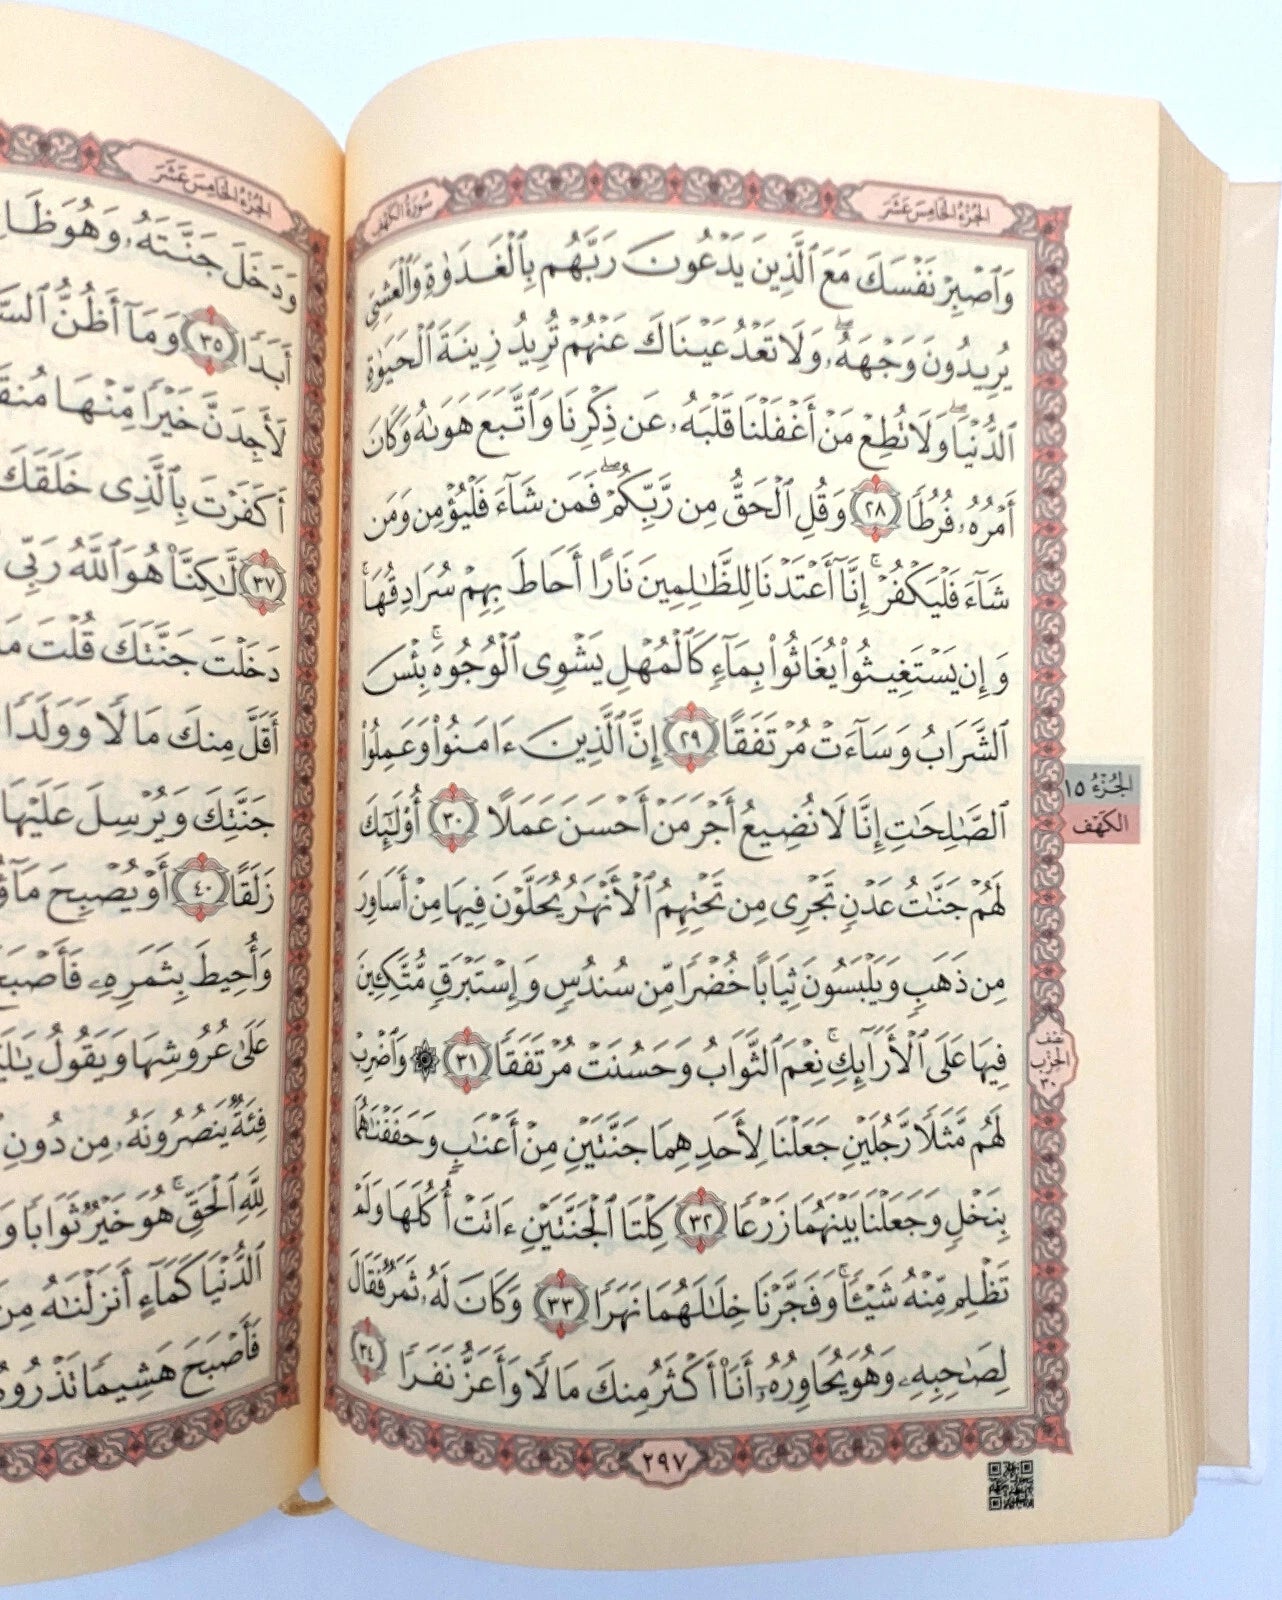 الجزء الخامس عشر
سورة الكهف
وَٱصۡبِرۡ نَفۡسَكَ مَعَ ٱلَّذِينَ يَدۡعُونَ رَبَّهُم بِٱلۡغَدَوٰةِ وَٱلۡعَشِيِّ
يُرِيدُونَ وَجۡهَهُۥۖ وَلَا تَعۡدُ عَيۡنَاكَ عَنۡهُمۡ تُرِيدُ زِينَةَ ٱلۡحَيَوٰةِ
ٱلدُّنۡيَاۖ وَلَا تُطِعۡ مَنۡ أَغۡفَلۡنَا قَلۡبَهُۥ عَن ذِكۡرِنَا وَٱتَّبَعَ هَوَىٰهُ وَكَانَ
أَمۡرُهُۥ فُرُطٗا ٢٨ وَقُلِ ٱلۡحَقُّ مِن رَّبِّكُمۡۖ فَمَن شَآءَ فَلۡيُؤۡمِن وَمَن
شَآءَ فَلۡيَكۡفُرۡۚ إِنَّآ أَعۡتَدۡنَا لِلظَّٰلِمِينَ نَارًا أَحَاطَ بِهِمۡ سُرَادِقُهَاۚ
وَإِن يَسۡتَغِيثُواْ يُغَاثُواْ بِمَآءٖ كَٱلۡمُهۡلِ يَشۡوِي ٱلۡوُجُوهَۚ بِئۡسَ
ٱلشَّرَابُ وَسَآءَتۡ مُرۡتَفَقًا ٢٩ إِنَّ ٱلَّذِينَ ءَامَنُواْ وَعَمِلُواْ
ٱلصَّٰلِحَٰتِ إِنَّا لَا نُضِيعُ أَجۡرَ مَنۡ أَحۡسَنَ عَمَلًا ٣٠ أُوْلَٰٓئِكَ
لَهُمۡ جَنَّٰتُ عَدۡنٖ تَجۡرِي مِن تَحۡتِهِمُ ٱلۡأَنۡهَٰرُ يُحَلَّوۡنَ فِيهَا مِنۡ أَسَاوِرَ
مِن ذَهَبٖ وَيَلۡبَسُونَ ثِيَابًا خُضۡرٗا مِّن سُندُسٖ وَإِسۡتَبۡرَقٖ مُّتَّكِـِٔينَ
فِيهَا عَلَى ٱلۡأَرَآئِكِۚ نِعۡمَ ٱلثَّوَابُ وَحَسُنَتۡ مُرۡتَفَقٗا ٣١ ۞ وَٱضۡرِبۡ
لَهُم مَّثَلٗا رَّجُلَيۡنِ جَعَلۡنَا لِأَحَدِهِمَا جَنَّتَيۡنِ مِنۡ أَعۡنَٰبٖ وَحَفَفۡنَٰهُمَا
بِنَخۡلٖ وَجَعَلۡنَا بَيۡنَهُمَا زَرۡعٗا ٣٢ كِلۡتَا ٱلۡجَنَّتَيۡنِ ءَاتَتۡ أُكُلَهَا وَلَمۡ
تَظۡلِم مِّنۡهُ شَيۡـٔٗاۚ وَفَجَّرۡنَا خِلَٰلَهُمَا نَهَرٗا ٣٣ وَكَانَ لَهُۥ ثَمَرٞ فَقَالَ
لِصَٰحِبِهِۦ وَهُوَ يُحَاوِرُهُۥٓ أَنَا۠ أَكۡثَرُ مِنكَ مَالٗا وَأَعَزُّ نَفَرٗا ٣٤
٢٩٧
الجُزْءُ ١٥
الكَهْف
نصف
الحزب
٣٠
الجزء الخامس عشر
وَدَخَلَ جَنَّتَهُۥ وَهُوَ
أَبَدٗا ٣٥ وَمَآ أَظُنُّ
لَأَجِدَنَّ خَيۡرٗا مِّنۡهَا
أَكَفَرۡتَ بِٱلَّذِي خَلَقَكَ
٣٧ لَّٰكِنَّا۠ هُوَ ٱللَّهُ رَبِّي
دَخَلۡتَ جَنَّتَكَ قُلۡتَ
أَقَلَّ مِنكَ مَالٗا وَوَلَدٗا
جَنَّتِكَ وَيُرۡسِلَ عَلَيۡهَا
زَلَقًا ٤٠ أَوۡ يُصۡبِحَ
وَأُحِيطَ بِثَمَرِهِۦ
عَلَىٰ عُرُوشِهَا وَيَقُولُ
فِئَةٞ يَنصُرُونَهُۥ مِن دُونِ
لِلَّهِ ٱلۡحَقِّۚ هُوَ خَيۡرٞ ثَوَابٗا
ٱلدُّنۡيَا كَمَآءٍ أَنزَلۡنَٰهُ
فَأَصۡبَحَ هَشِيمٗا